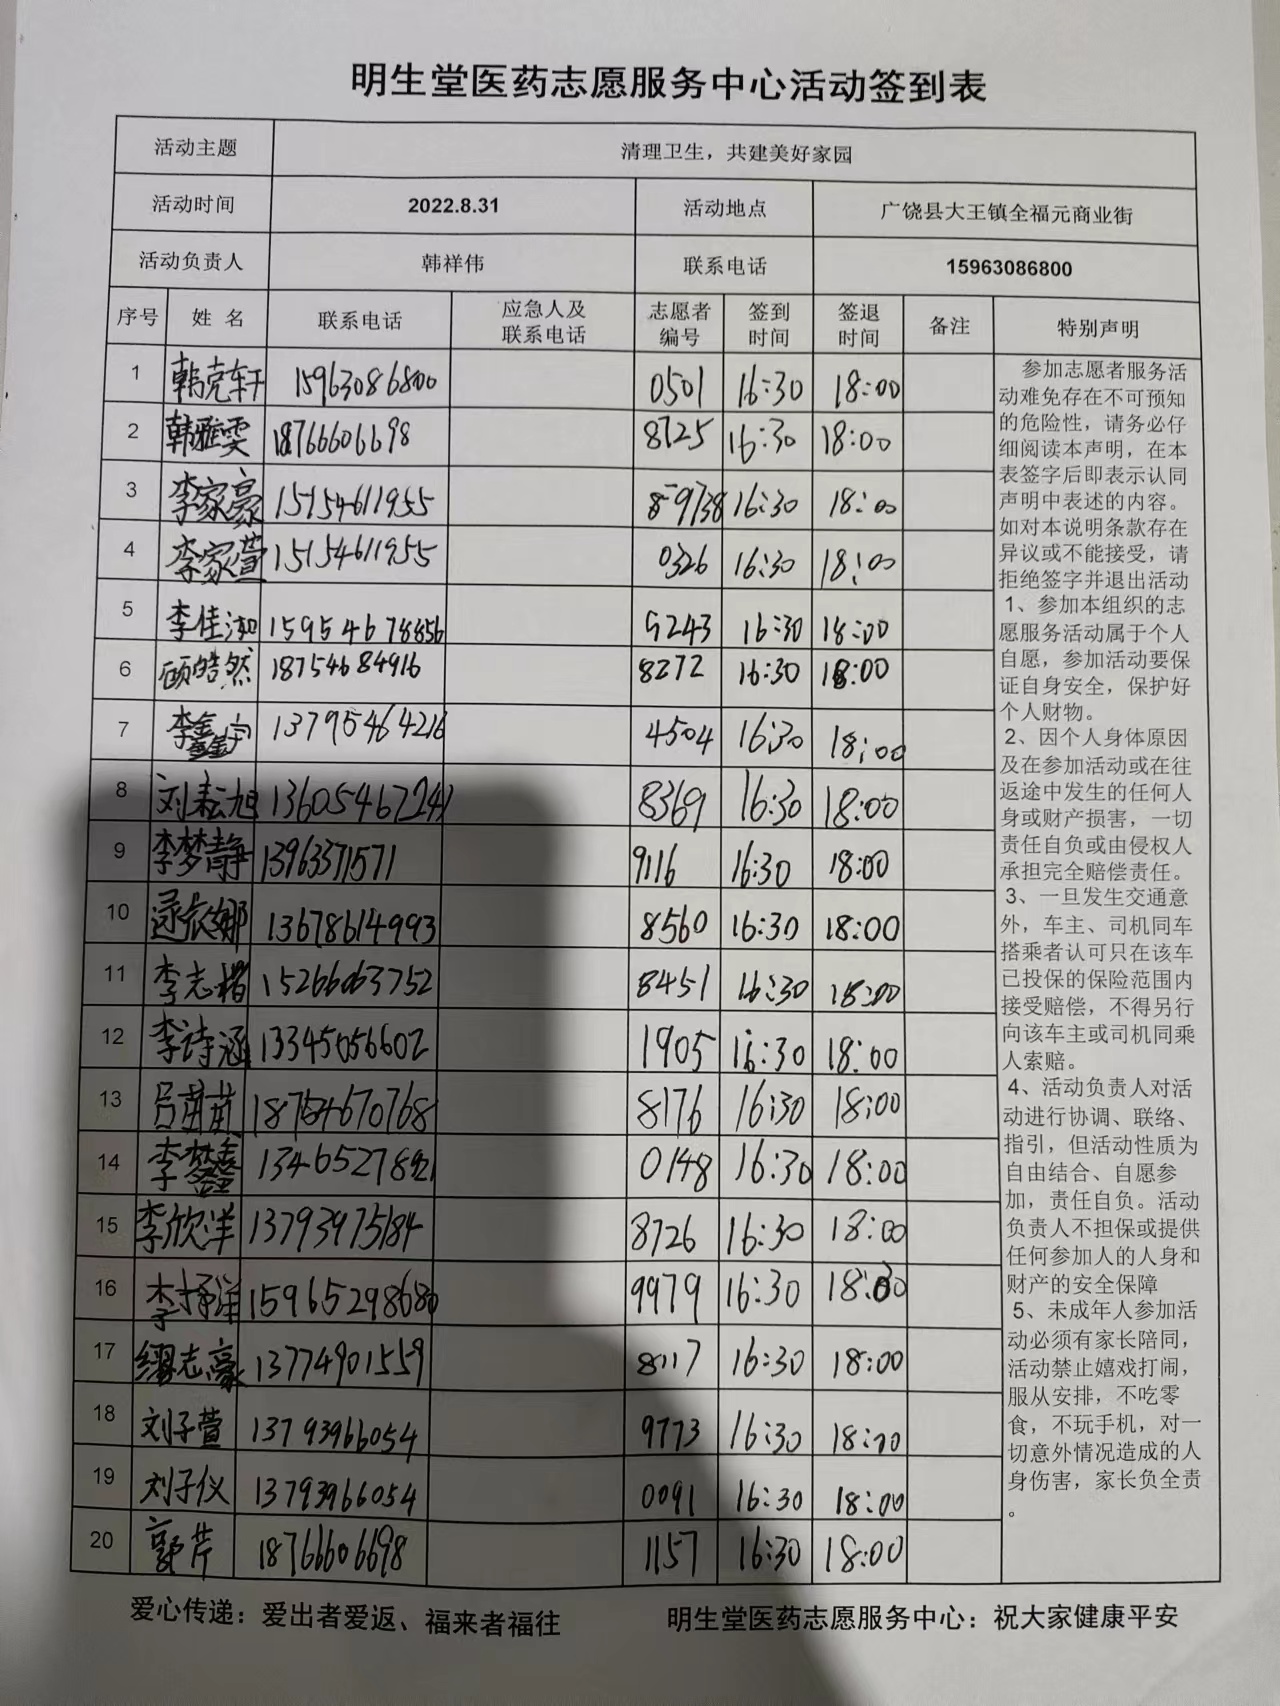 明生堂医药志愿服务中心活动签到表
活动主题 清理卫生，共建美好家园
活动时间 2022.8.31 活动地点 广饶县大王镇全福元商业街
活动负责人 韩祥伟 联系电话 15963086800
序号 姓 名 联系电话 应急人及联系电话 志愿者编号 签到时间 签退时间 备注 特别声明
1 韩克轩 15963086800 0501 16:30 18:00
2 韩雅雯 18766606698 8725 16:30 18:00
3 李家豪 15154611955 16:30 18:00
4 李家萱 15154611955 0326 16:30 18:00
5 李佳 15954678856 9243 16:30 18:00
6 顾皓然 18754684916 8272 16:30 18:00
7 李鑫宇 13795464216 4504 16:30 18:00
8 刘耘旭 8369 16:30 18:00
9 李梦静 13963371571 9116 16:30 18:00
10 娜 13678614993 8560 16:30 18:00
11 李志楷 15266063752 8451 16:30 18:00
12 李诗涵 13345056602 1905 16:30 18:00
13 吕苗苗 18754670768 8176 16:30 18:00
14 李梦鑫 0148 16:30 18:00
15 李欣洋 13793975184 8726 16:30 18:00
16 李 洋 15965298680 9979 16:30 18:00
17 志豪 13774901559 8117 16:30 18:00
18 刘子萱 13793966054 9773 16:30 18:00
19 刘子仪 13793966054 0091 16:30 18:00
20 郭芹 18766606698 1157 16:30 18:00
参加志愿者服务活
动难免存在不可预知
的危险性，请务必仔
细阅读本声明，在本
表签字后即表示认同
声明中表述的内容。
如对本说明条款存在
异议或不能接受，请
拒绝签字并退出活动
1、参加本组织的志
愿服务活动属于个人
自愿，参加活动要保
证自身安全，保护好
个人财物。
2、因个人身体原因
及在参加活动或在往
返途中发生的任何人
身或财产损害，一切
责任自负或由侵权人
承担完全赔偿责任。
3、一旦发生交通意
外，车主、司机同车
搭乘者认可只在该车
已投保的保险范围内
接受赔偿，不得另行
向该车主或司机同乘
人索赔。
4、活动负责人对活
动进行协调、联络、
指引，但活动性质为
自由结合、自愿参
加，责任自负。活动
负责人不担保或提供
任何参加人的人身和
财产的安全保障
5、未成年人参加活
动必须有家长陪同，
活动禁止嬉戏打闹，
服从安排，不吃零
食，不玩手机，对一
切意外情况造成的人
身伤害，家长负全责
。
爱心传递：爱出者爱返、福来者福往 明生堂医药志愿服务中心：祝大家健康平安